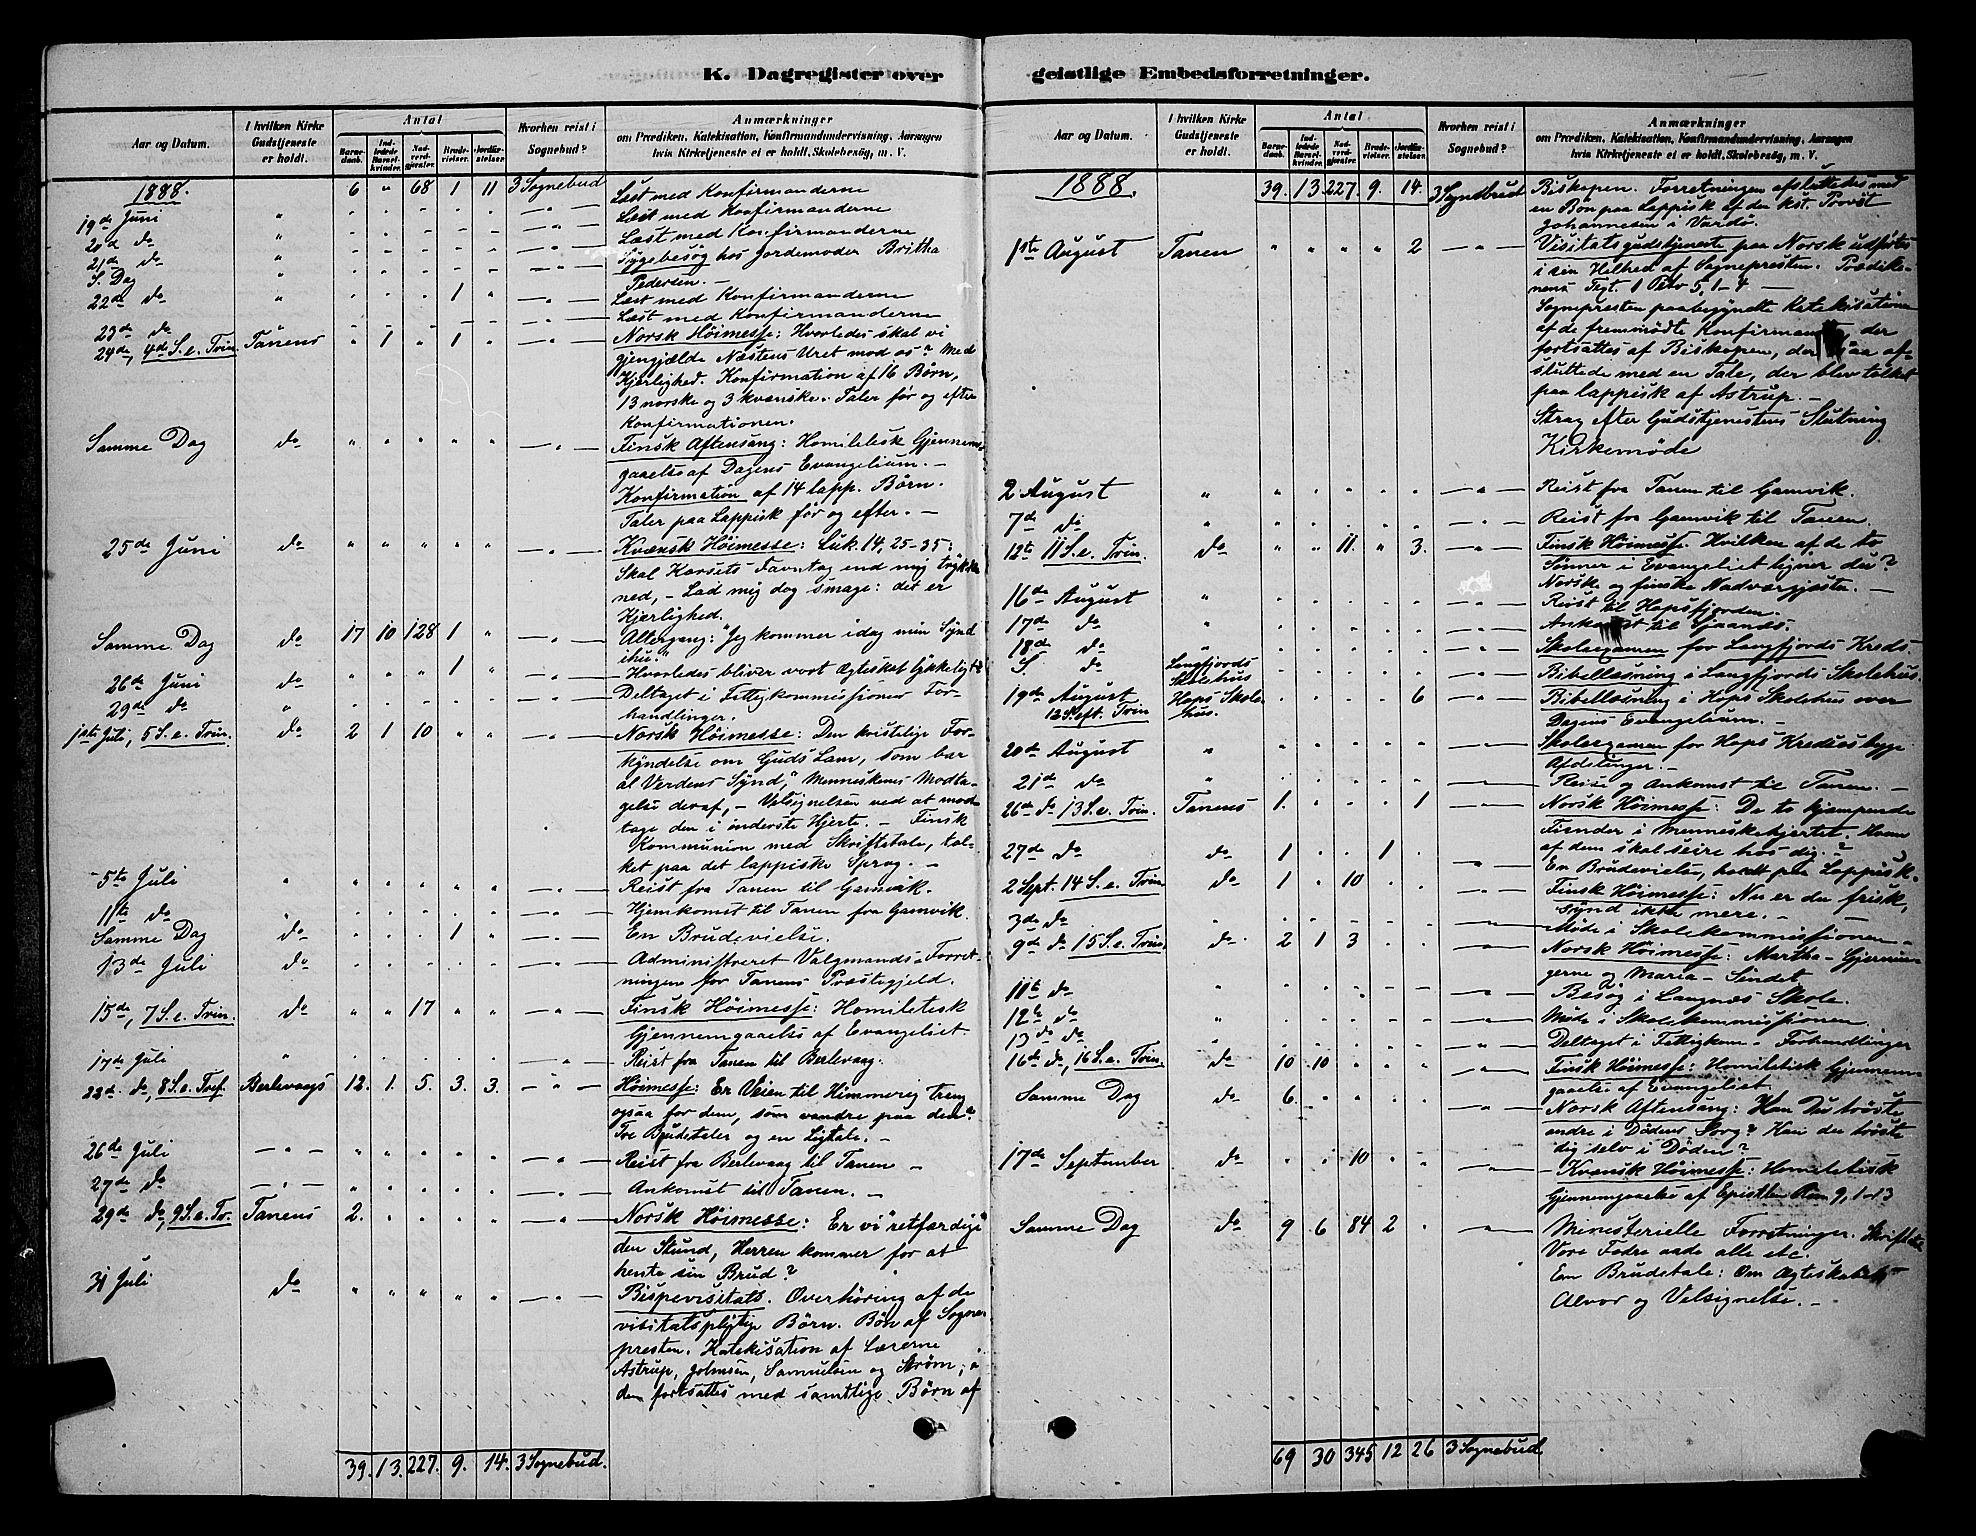 K. Dagregister over
Aar og Datum.
I hvilken Kirke Gudstjeneste er holdt.
Antal
Barnedaab.
Indledede Barselkvinder.
Nadverdgjester.
Brudevielser.
Jordfæstelser.
Hvorhen reist i Sognebud?
Anmærkninger
om Prædiken, Katekisation, Konfirmandundervisning, Aarsagen
hvis Kirketjeneste ei er holdt, Skolebesøg, m. V.
1888. 6 " 68 1 11 3 Sognebud Læst med Konfirmanderne
19de Juni " Læst med Konfirmanderne
20de do " Læst med Konfirmanderne
21de do " Sygebesøg hos Jordemoder Britha
S. Dag " Pedersen. —
22de do " 1 " Læst med Konfirmanderne
23de do Læst med Konfirmanderne
24de, 4de S. e. Trin. Tanens " 1 " 1 " Norsk Høimesse: Hvorledes skal vi
gjengjælde Næstens Uret mod os? Med
Kjærlighed. Konfirmation af 16 Børn,
13 norske og 3 kvænske. Taler før og efter
Konfirmationen.
Samme Dag do " " " " " Finsk Aftensang: Homiletisk Gjennem-
gaaelse af Dagens Evangelium. —
Konfirmation af 14 lapp. Børn.
Taler paa Lappisk før og efter. —
25de Juni do " " " " " Kvænsk Høimesse: Luk. 14, 25-35:
Skal Korsets Favntag end mig trykke
ned, — Lad mig dog smage: det er
Kjærlighed.
Samme Dag do 17 10 128 1 " Altergang: "Jeg kommer idag min Synd
ihu."
26de Juni do 1 " Hvorledes bliver vort Ægteskab lykkeligt?
29de do " Deltaget i Fattigkommissionens For-
handlinger.
1ste Juli, 5 S. e. Trin. do 2 1 10 " " Norsk Høimesse: Den kristelige For-
kyndelse om Guds Lam, som bar
al Verdens Synd, Menneskenes Modta-
gelse deraf, — Velsignelsen ved at mod-
tage den i inderste Hjerte. — Finsk
Kommunion med Skriftetale, tol-
ket paa det lappiske Sprog. —
5te Juli " Reist fra Tanen til Gamvik.
11te do " Hjemkomst til Tanen fra Gamvik.
Samme Dag do 1 " En Brudevielse.
13de Juli do Administreret Valgmands-Forret-
ningen for Tanens Præstegjeld.
15de, 7 S. e. Trin. do " " 17 " " Finsk Høimesse: Homiletisk
Gjennemgaaelse af Evangeliet.
17de Juli " Reist fra Tanen til Berlevaag.
22de do, 8 S. e. Tref. Berlevaags 12. 1. 5. 3. 3. Høimesse: Er Veien til Himmerig trang
ogsaa for dem, som vandre paa den?
Tre Brudetaler og en Ligtale. —
26de Juli — " — Reist fra Berlevaag til Tanen —
27de do — " — Ankomst til Tanen. —
29de do, 9 S. e. Tr. Tanens 2. Norsk Høimesse: Er vi "retfærdige"
den Stund, Herren kommer for at
hente sin Brud?
31 Juli do " " " " " Bispevisitats. Overhøring af de
visitatspligtige Børn. Bøn af Sogne-
presten. Katekisation af Lærerne
Astrup, Johnsen, Samuelsen og Strøm;
den fortsattes med samtlige Børn af
39. 13. 227. 9. 14. 3 Sognebud.
geistlige Embedsforretninger.
Aar og Datum.
I hvilken Kirke Gudstjeneste er holdt.
Antal
Barnedaab.
Indledede Barselkvinder.
Nadverdgjester.
Brudevielser.
Jordfæstelser.
Hvorhen reist i Sognebud?
Anmærkninger
om Prædiken, Katekisation, Konfirmandundervisning, Aarsagen
hvis Kirketjeneste ei er holdt, Skolebesøg, m. V.
1888. 39. 13. 227. 9. 14. 3 Sognebud Biskopen. Forretningen afsluttedes med
en Bøn paa Lappisk af den kst. Provst
Johannesen i Vardø.
1ste August Tanen " " " " 2 Visitatsgudstjeneste paa Norsk udførtes
i sin Helhed af Sognepresten. Prædike-
nens Text. 1 Petr. 5, 1-4 —
Sognepresten paabegyndte Katekisationen
af de fremmødte Konfirman der
fortsattes af Biskopen, der saa af-
sluttede med en Tale, der blev tolket
paa lappisk af Astrup. —
Strax efter Gudstjenestens Slutning
Kirkemøde
2 August " Reist fra Tanen til Gamvik.
7de do " Reist fra Gamvik til Tanen.
12te 11 S. e. Trin. do " " 11. " 3. Finsk Høimesse: Hvilken af de to
Sønner i Evangeliet ligner du?
Norske og finske Nadvergjester. —
16de August " Reist til Hopsfjorden.
17de do " Ankomst til
18de do " Skoleexamen for Langfjords Kreds.
S. do Langfjords Skolehus Bibellæsning i Langfjords Skolehus.
19de August 12 S. eft. Trin Hops Skolehus. 6 Bibellæsning i Hops Skolehus over
Dagens Evangelium. —
20de August " Skoleexamen for Hops Kreds begge
Afdelinger. —
21de do " Reise og Ankomst til Tanen. —
26de do 13 S. e. Trin. Tanens 1. 1 Norsk Høimesse: De to kjæmpende
Fiender i Menneskehjertet. Hvem
af dem skal seire hos dig.?
27de do do 1 1 En Brudevielse, holdt paa Lappisk.
2 Sept. 14 S. e. Trin do 1 10 Finsk Høimesse: Nu er du frisk,
synd ikke mere. —
3de do Møde i Skolekommissionen —
9de do 15 S. e. Trin. do 2 1 3 Norsk Høimesse: Martha — Gjernin-
gerne og Maria — Sindet
11te do " Besøg i Langnæs Skole.
12te do " Møde i Skolekommissionen.
13de do Deltaget i Fattigkom. Forhandlinger
16de do, 16 S. e. Trin. do 10 10 Finsk Høimesse: Homiletisk Gjennem-
gaaelse af Evangeliet.
Samme Dag do 6. Norsk Aftensang: Kan Du trøste
andre i Dødens Sorg? Kan du trøste
dig selv i Døden?
17de September do 10 Kvænsk Høimesse: Homiletisk
Gjennemgaaelse af Epistlen Rom 9, 1-13
Samme Dag do 9 6 84 2 Ministerielle Forretninger. Skriftetale
Vore Fædre aade alle etc.
En Brudetale: Om Ægteskabets
Alvor og Velsignelse. —
69 30 345 12 26 3 Sognebud